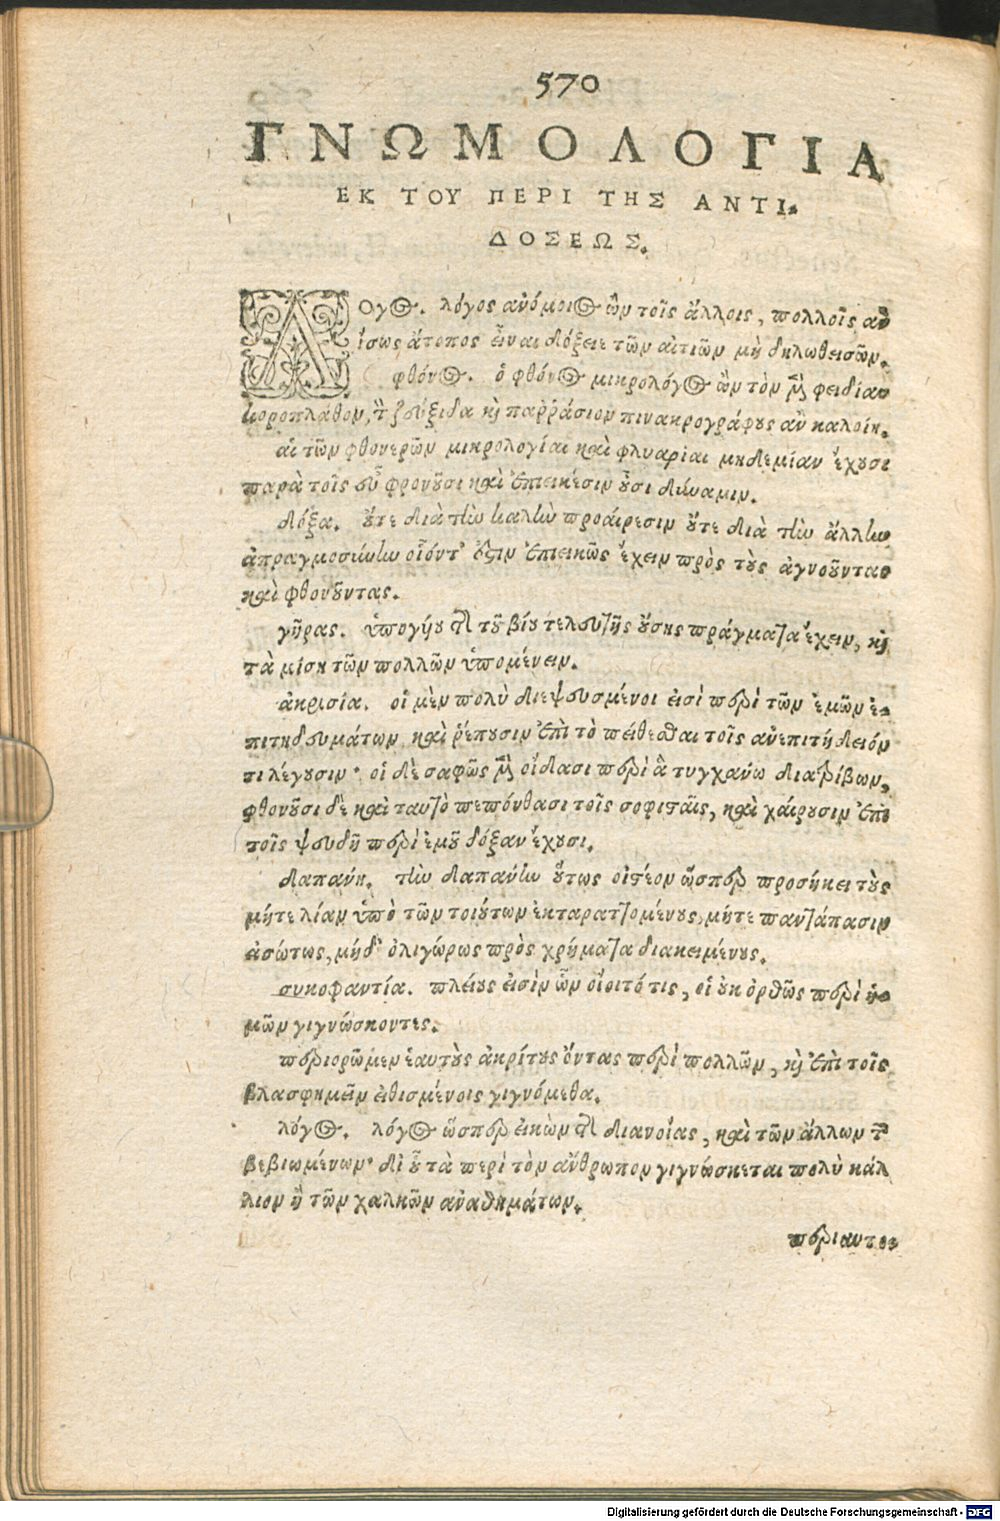 570
ΓΝΩΜΟΛΟΓΙΑ
ΕΚ ΤΟΥ ΠΕΡΙ ΤΗΣ ΑΝΤΙ-
ΔΟΣΕΩΣ.
Λόγος. λόγος ἀνόμοιος ὢν τοῖς ἄλλοις, πολλοῖς ἂν
ἴσως ἄτοπος εἶναι δόξειε τῶν αἰτιῶν μὴ δηλωθεισῶν.
φθόνος. ὁ φθόνος μικρολόγος ὢν τὸν μὲν φειδίαν
κοροπλάθον, ἢ ζεύξιδα καὶ παῤῥάσιον πινακρογράφους ἂν καλοίη.
αἱ τῶν φθονερῶν μικρολογίαι καὶ φλυαρίαι μηδεμίαν ἔχουσι
παρὰ τοῖς εὖ φρονοῦσι καὶ ἐπιεικέσιν οὖσι δύναμιν.
δόξα. οὔτε διὰ τὴν καλὴν προαίρεσιν οὔτε διὰ τὴν ἄλλην
ἀπραγμοσύνην οἷόντ' ἐστιν ἐπιεικῶς ἔχειν πρὸς τοὺς ἀγνοοῦντας
καὶ φθονοῦντας.
γῆρας. ὑπογύου τῆς τοῦ βίου τελευτῆς οὔσης πράγματα ἔχειν, καὶ
τὰ μίση τῶν πολλῶν ὑπομένειν.
ἀκρισία. οἱ μὲν πολὺ διεψευσμένοι εἰσὶ περὶ τῶν ἐμῶν ἐ-
πιτηδευμάτων, καὶ ῥέπουσιν ἐπὶ τὸ πείθεσθαι τοῖς ἀνεπιτήδειόν
τι λέγουσιν· οἱ δὲ σαφῶς μὲν οἴδασι περὶ ἃ τυγχάνω διατρίβων,
φθονοῦσι δὲ καὶ ταυτὸ πεπόνθασι τοῖς σοφισταῖς, καὶ χαίρουσιν ἐπὶ
τοῖς ψευδῆ περὶ ἐμοῦ δόξαν ἔχουσι.
δαπάνη. τὴν δαπάνην οὕτως οἰστέον ὥσπερ προσήκει τοὺς
μήτε λίαν ὑπὸ τῶν τοιούτων ἐκταραττομένους, μήτε παντάπασιν
ἀσώτως, μήδ' ὀλιγώρως πρὸς χρήματα διακειμένους.
συκοφαντία. πλείους εἰσὶν ὧν οἴοιτό τις, οἱ οὐκ ὀρθῶς περὶ ἡ-
μῶν γιγνώσκοντες.
περιορῶμεν ἑαυτοὺς ἀκρίτους ὄντας περὶ πολλῶν, καὶ ἐπὶ τοῖς
βλασφημεῖν εἰθισμένοις γιγνόμεθα.
λόγος. λόγος ὥσπερ εἰκὼν τῆς διανοίας, καὶ τῶν ἄλλων τῶν
βεβιωμένων· δι' οὗ τὰ περὶ τὸν ἄνθρωπον γιγνώσκεται πολὺ κάλ
λιον ἢ τῶν χαλκῶν ἀναθημάτων.
περιαυτο-
Digitalisierung gefördert durch die Deutsche Forschungsgemeinschaft - DFG